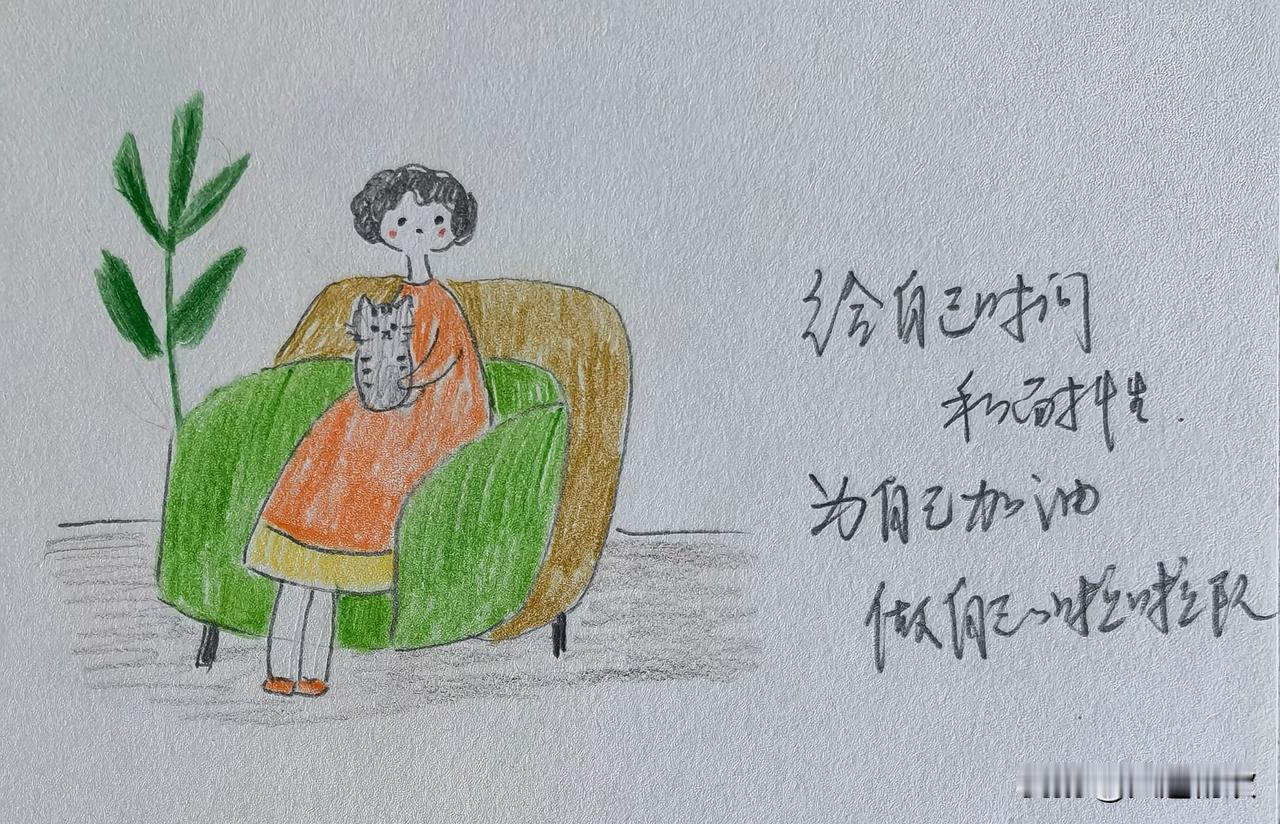 给自己时间
和耐性.
为自己加油
做自己的啦啦队